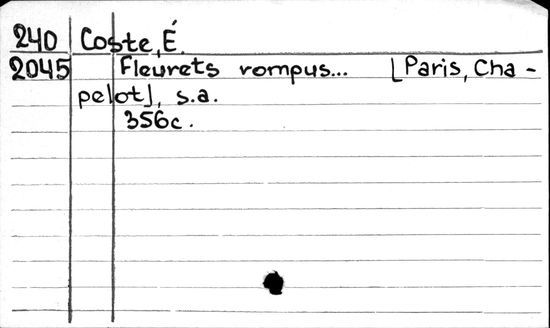 240 Coste, É.
2045 Fleurets rompus... [Paris, Cha-
pelot], s.a.
356c.